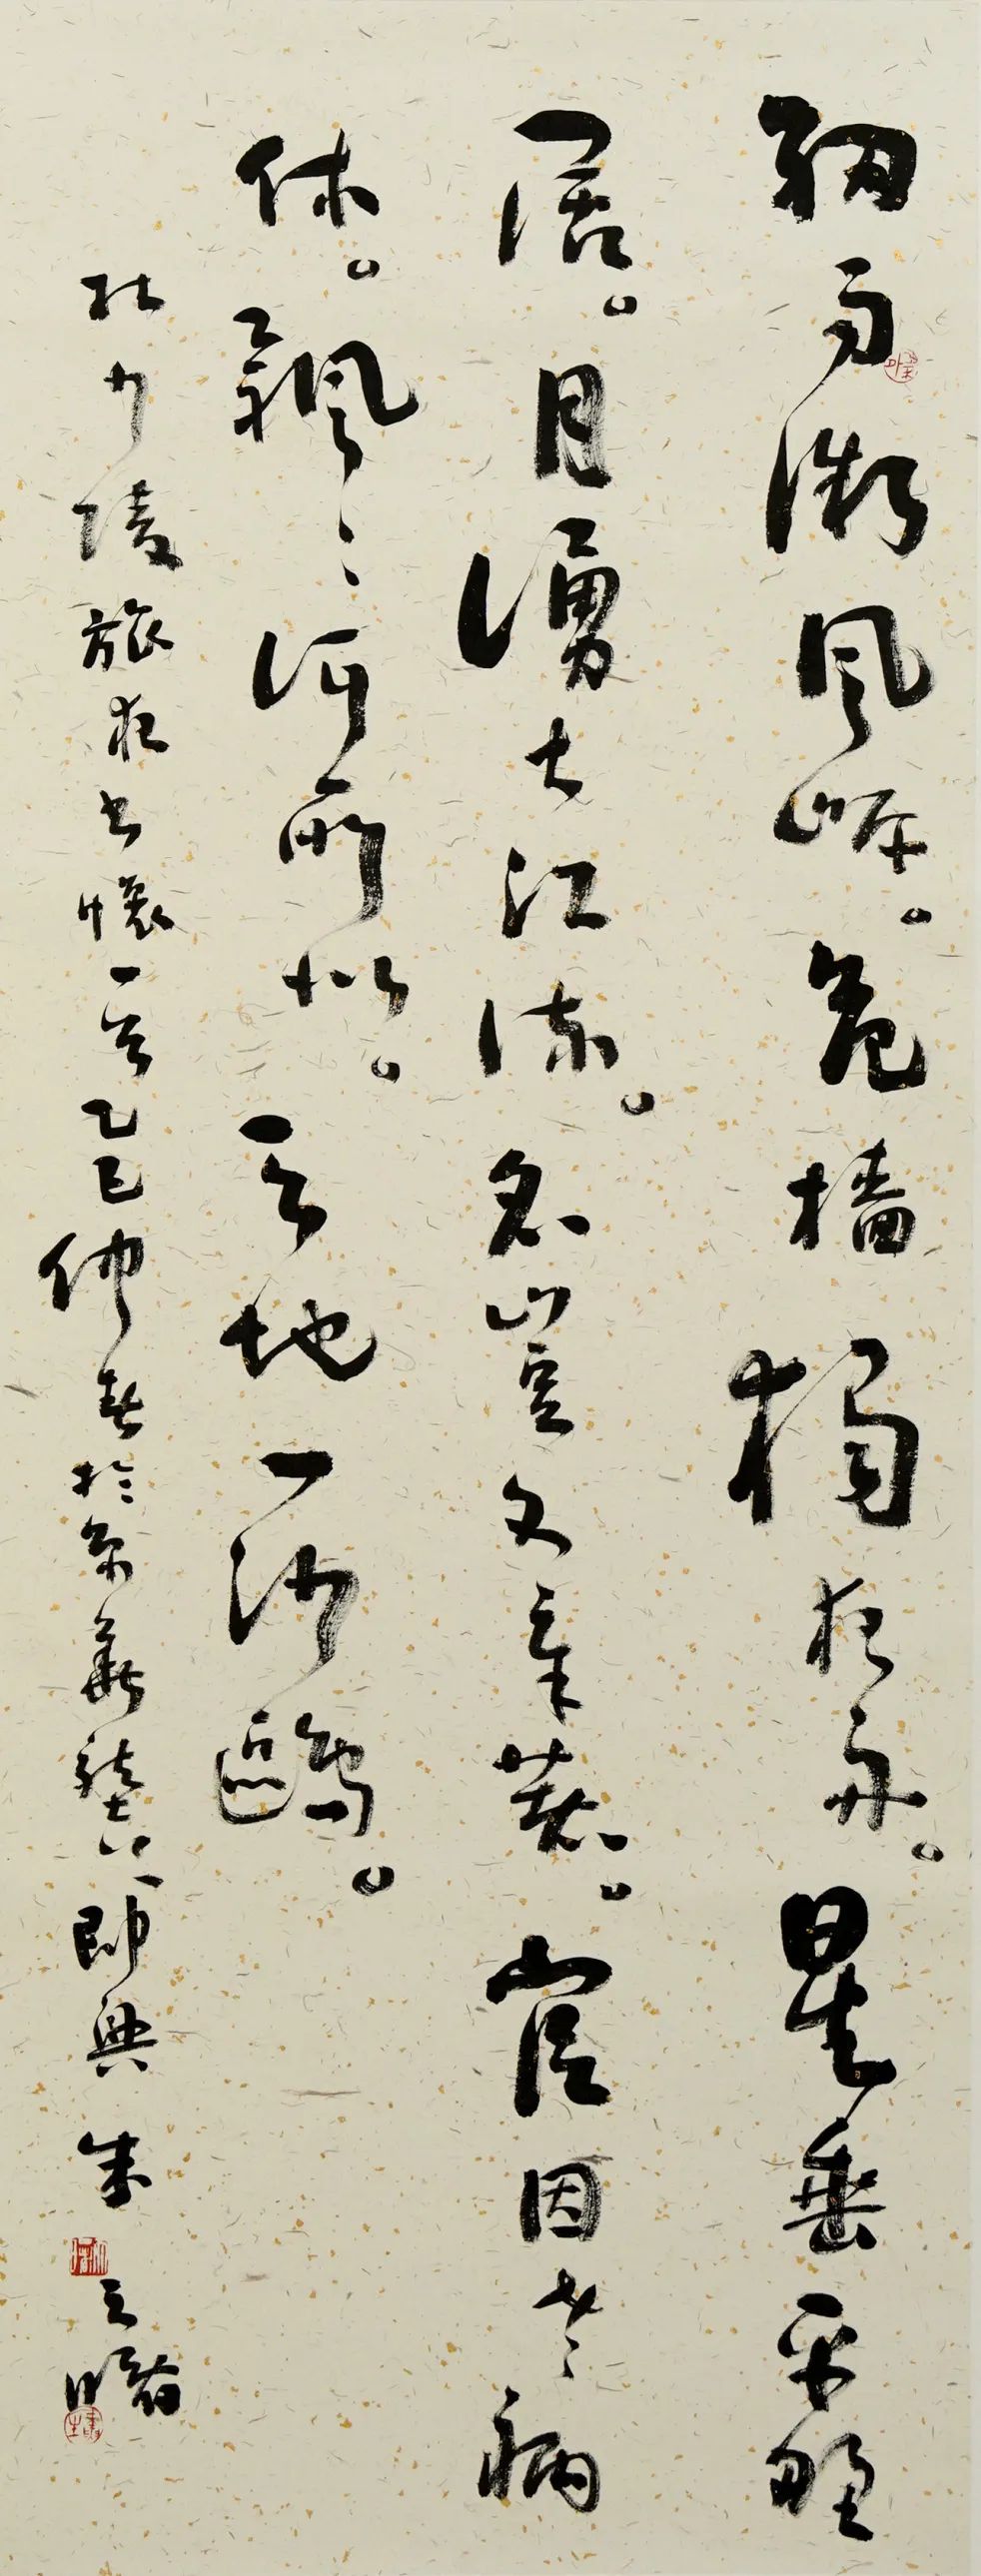 細草微風岸。危檣獨夜舟。星垂平野
闊。月湧大江流。名豈文章著。官因老病
休。飄〻何所似。天地一沙鷗。
杜少陵旅夜書懷一首乙巳仲春於京華即興朱天曙